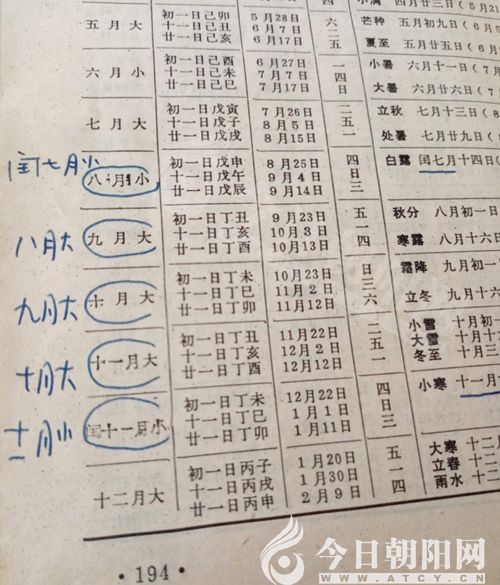 小满 四月廿三日（5月21
五月大 初一日己卯 5月28日 四 芒种 五月初九日（6
十一日己丑 6月7日 六
廿一日己亥 6月17日 二 夏至 五月廿五日（6
六月小 初一日己酉 6月27日 一 小暑 六月
十一日己未 7月7日 四
廿一日己巳 7月17日 日 大暑 六月廿六日（7
七月大 初一日戊寅 7月26日 二 立秋 七月十三日（8
十一日戊子 8月5日 五
廿一日戊戌 8月15日 一 处暑 七月廿九
闰七月小 八月小 初一日戊申 8月25日 四 白露 闰七月十四日（
十一日戊午 9月4日 日
廿一日戊辰 9月14日 三
八月大 九月大 初一日丁丑 9月23日 五 秋分 八月初一日
十一日丁亥 10月3日 一
廿一日丁酉 10月13日 四 寒露 八月十六日
九月大 十月大 初一日丁未 10月23日 日 霜降 九月初一
十一日丁巳 11月2日 三
廿一日丁卯 11月12日 六 立冬 九月十六
十月大 十一月大 初一日丁丑 11月22日 二 小雪 十月初
十一日丁亥 12月2日 五 大雪 十月
廿一日丁酉 12月12日 一 冬至 十月三
十一月小 闰十一月小 初一日丁未 12月22日 四 小寒 十一月
十一日丁巳 1月1日 日
廿一日丁卯 1月11日 三
十二月大 初一日丙子 1月20日 五 大寒 十二月
十一日丙戌 1月30日 一 立春 十二
廿一日丙申 2月9日 四 雨水 十二
·194·
今日朝阳网
WWW.ATCY.CN